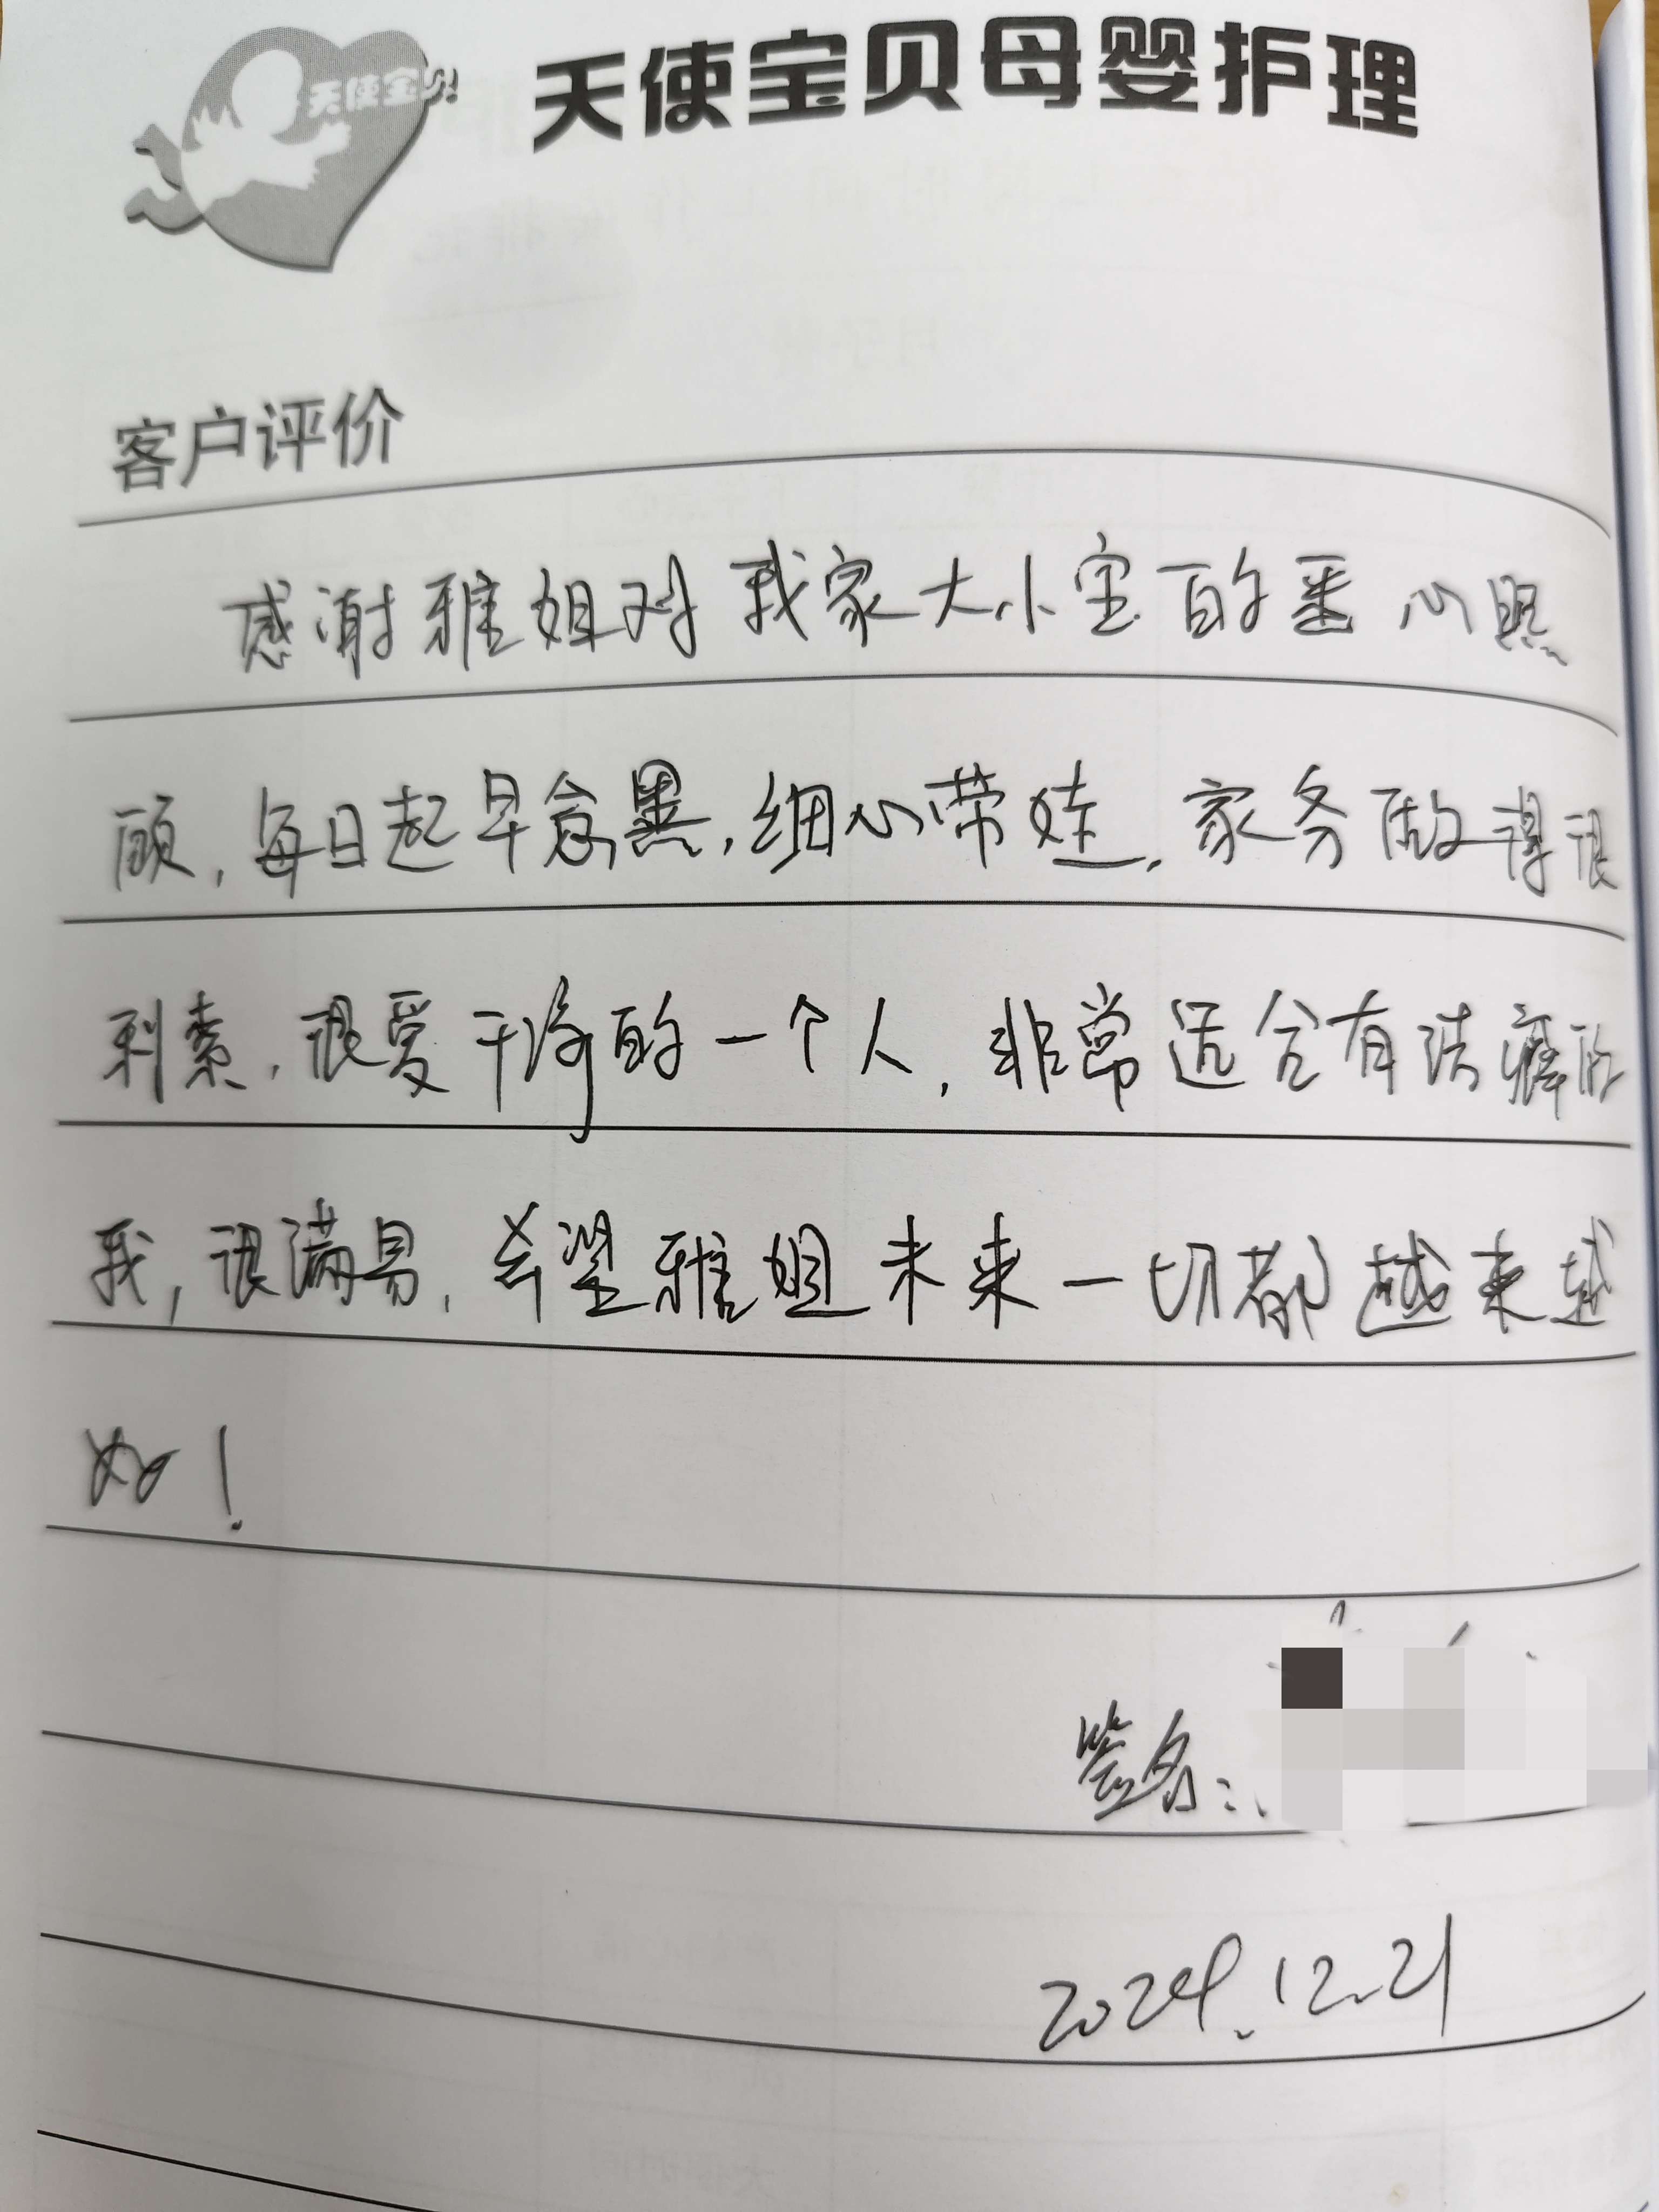 天使宝贝
天使宝贝母婴护理
客户评价
感谢雅姐对我家大小宝的悉心照
顾，每日起早贪黑，细心带娃，家务做得很
利索，很爱干净的一个人，非常适合有洁癖的
我，很满易，希望雅姐未来一切都越来越
好！
签名：
2024.12.21